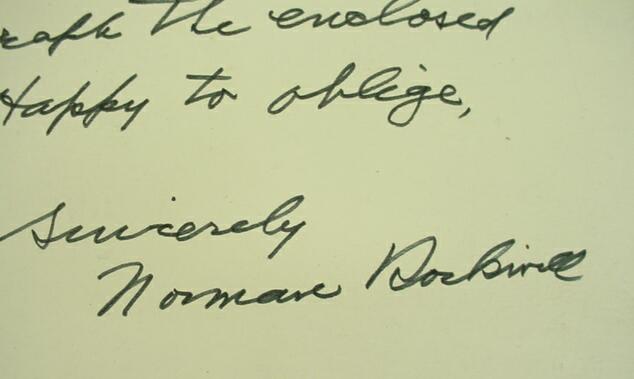 raph the enclosed
Happy to oblige,
Sincerely
Norman Rockwell